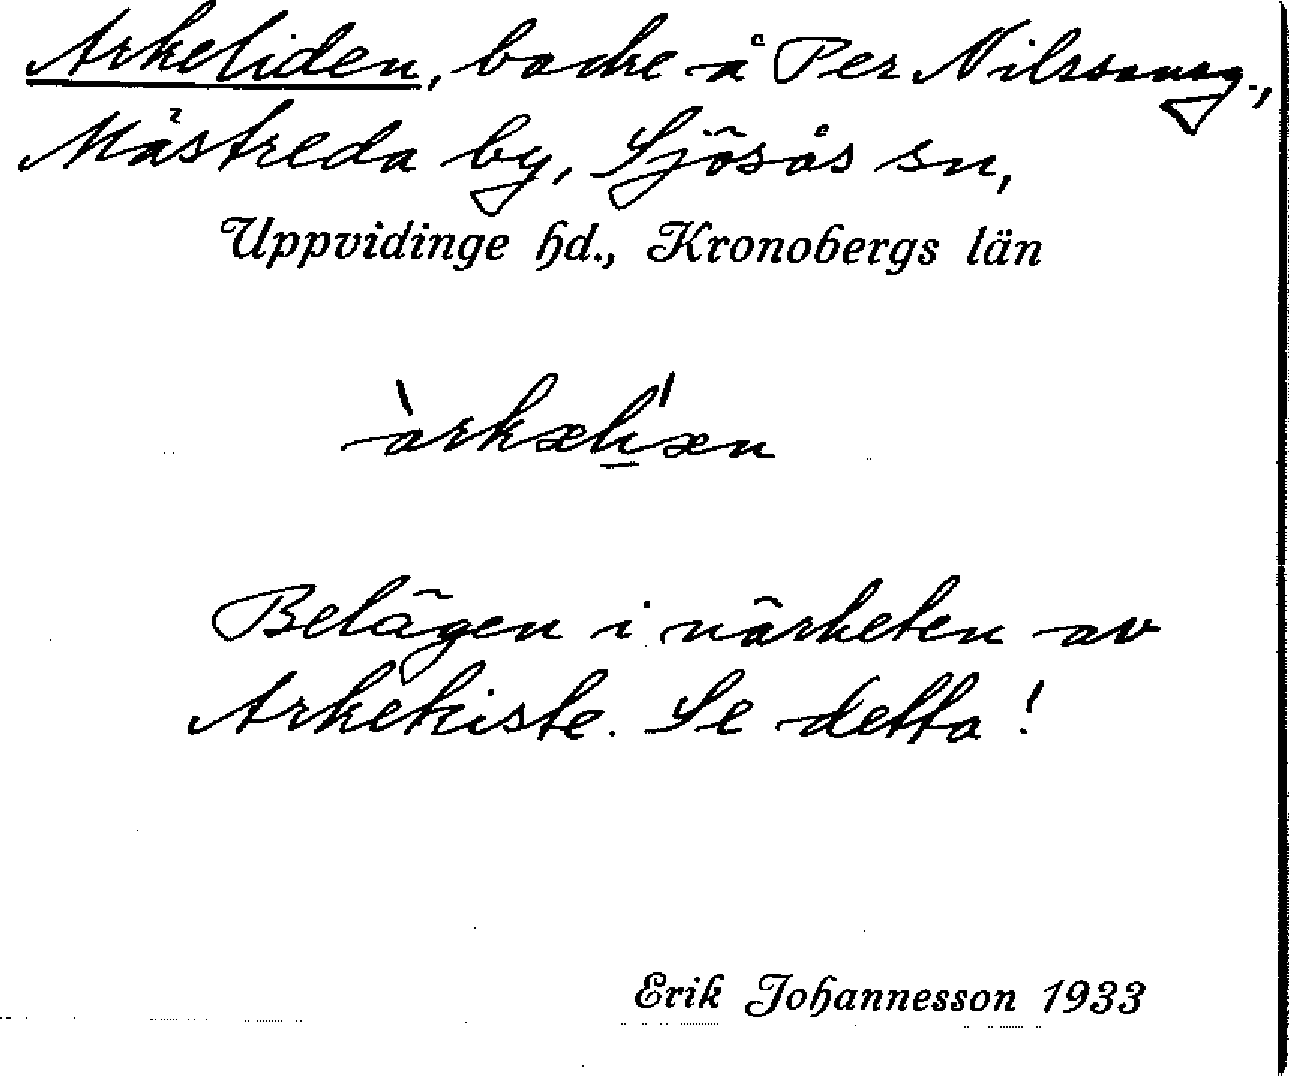 Arkeliden, backe å Per Nilssonsg.,
Mästreda by, Sjösås sn,
Uppvidinge hd., Kronobergs län
àrkælíæn
Belägen i närheten av
Arkekiste. Se detta!
Erik Johannesson 1933